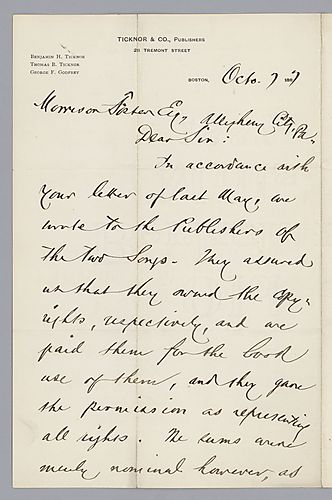 TICKNOR & CO., PUBLISHERS
211 TREMONT STREET
BENJAMIN H. TICKNOR
THOMAS B. TICKNOR
GEORGE F. GODFREY
BOSTON, Octo. 7 188
Morrison Foster Esq, Allegheny City, Pa.
Dear Sir:
In accordance with
your letter of last May, we
wrote to the Publishers of
the two Songs. They assured
us that they owned the copy-
rights, respectively, and we
paid them for the book
use of them, and they gave
the permission as representing
all rights. The sums were
merely nominal however, as